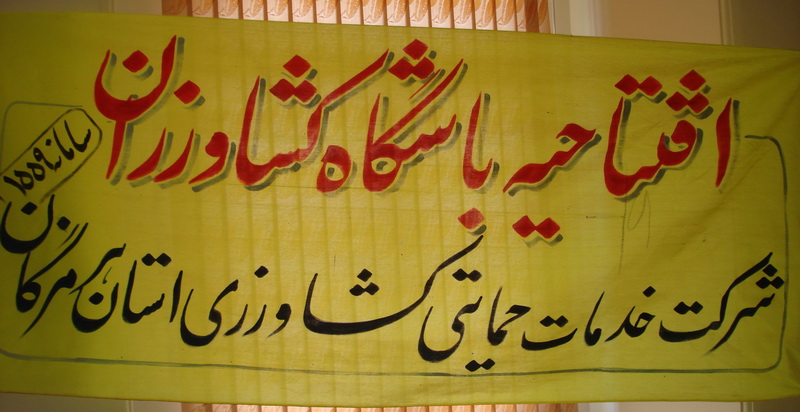 افتتاحیه باشگاه کشاورزان
شرکت خدمات حمایتی کشاورزی استان هرمزگان
سامانه ۱۵۵۹